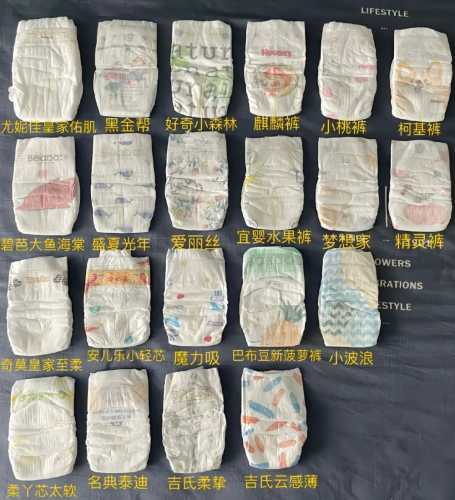 LIFESTYLE
尤妮佳皇家佑肌
黑金帮
好奇小森林
麒麟裤
小桃裤
柯基裤
碧芭大鱼海棠
盛夏光年
爱丽丝
宜婴水果裤
梦想家
精灵裤
奇莫皇家至柔
安儿乐小轻芯
魔力吸
巴布豆新菠萝裤
小波浪
柔丫芯太软
名典泰迪
吉氏柔挚
吉氏云感薄